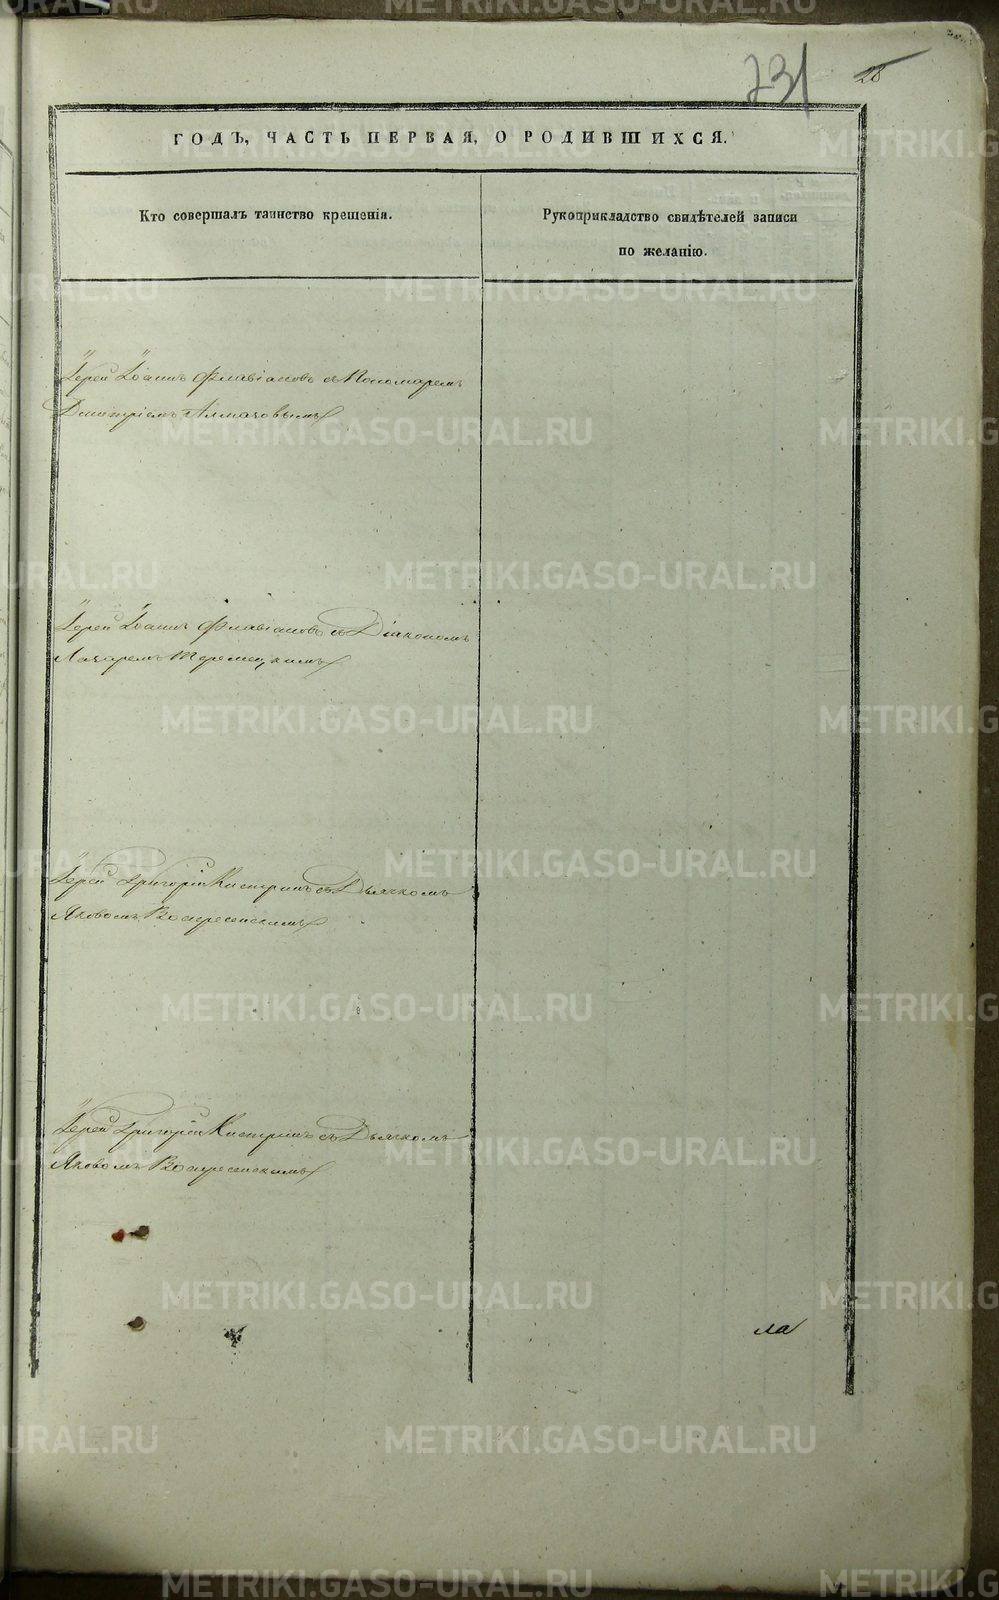 231 28
ГОДЪ, ЧАСТЬ ПЕРВАЯ, О РОДИВШИХСЯ.
Кто совершалъ таинство крещенія.
Рукоприкладство свидѣтелей записи
по желанію.
Іерей Іоаннъ Флавіановъ съ Пономаремъ
Димитріемъ Алмазовымъ
Іерей Іоаннъ Флавіановъ съ Діакономъ
Лазаремъ
Іерей Григорій Кастринъ съ Дьячкомъ
Яковомъ Воскресенскимъ
Іерей Григорій Кастринъ съ Дьячкомъ
Яковомъ Воскресенскимъ
ла
METRIKI.GASO-URAL.RU